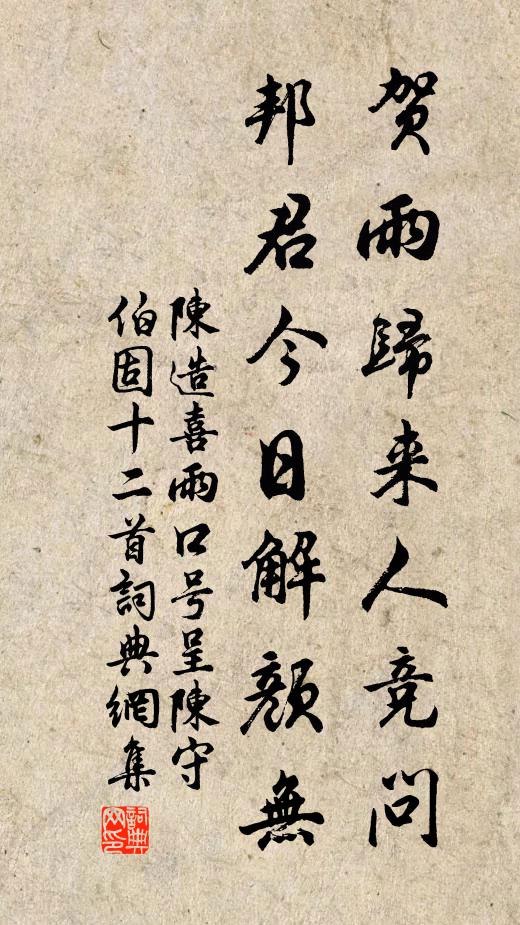 贺雨歸来人竞问
邦君今日解颜無
陳造喜雨口号呈陳守
伯固十二首詞典網集
詞典
网印